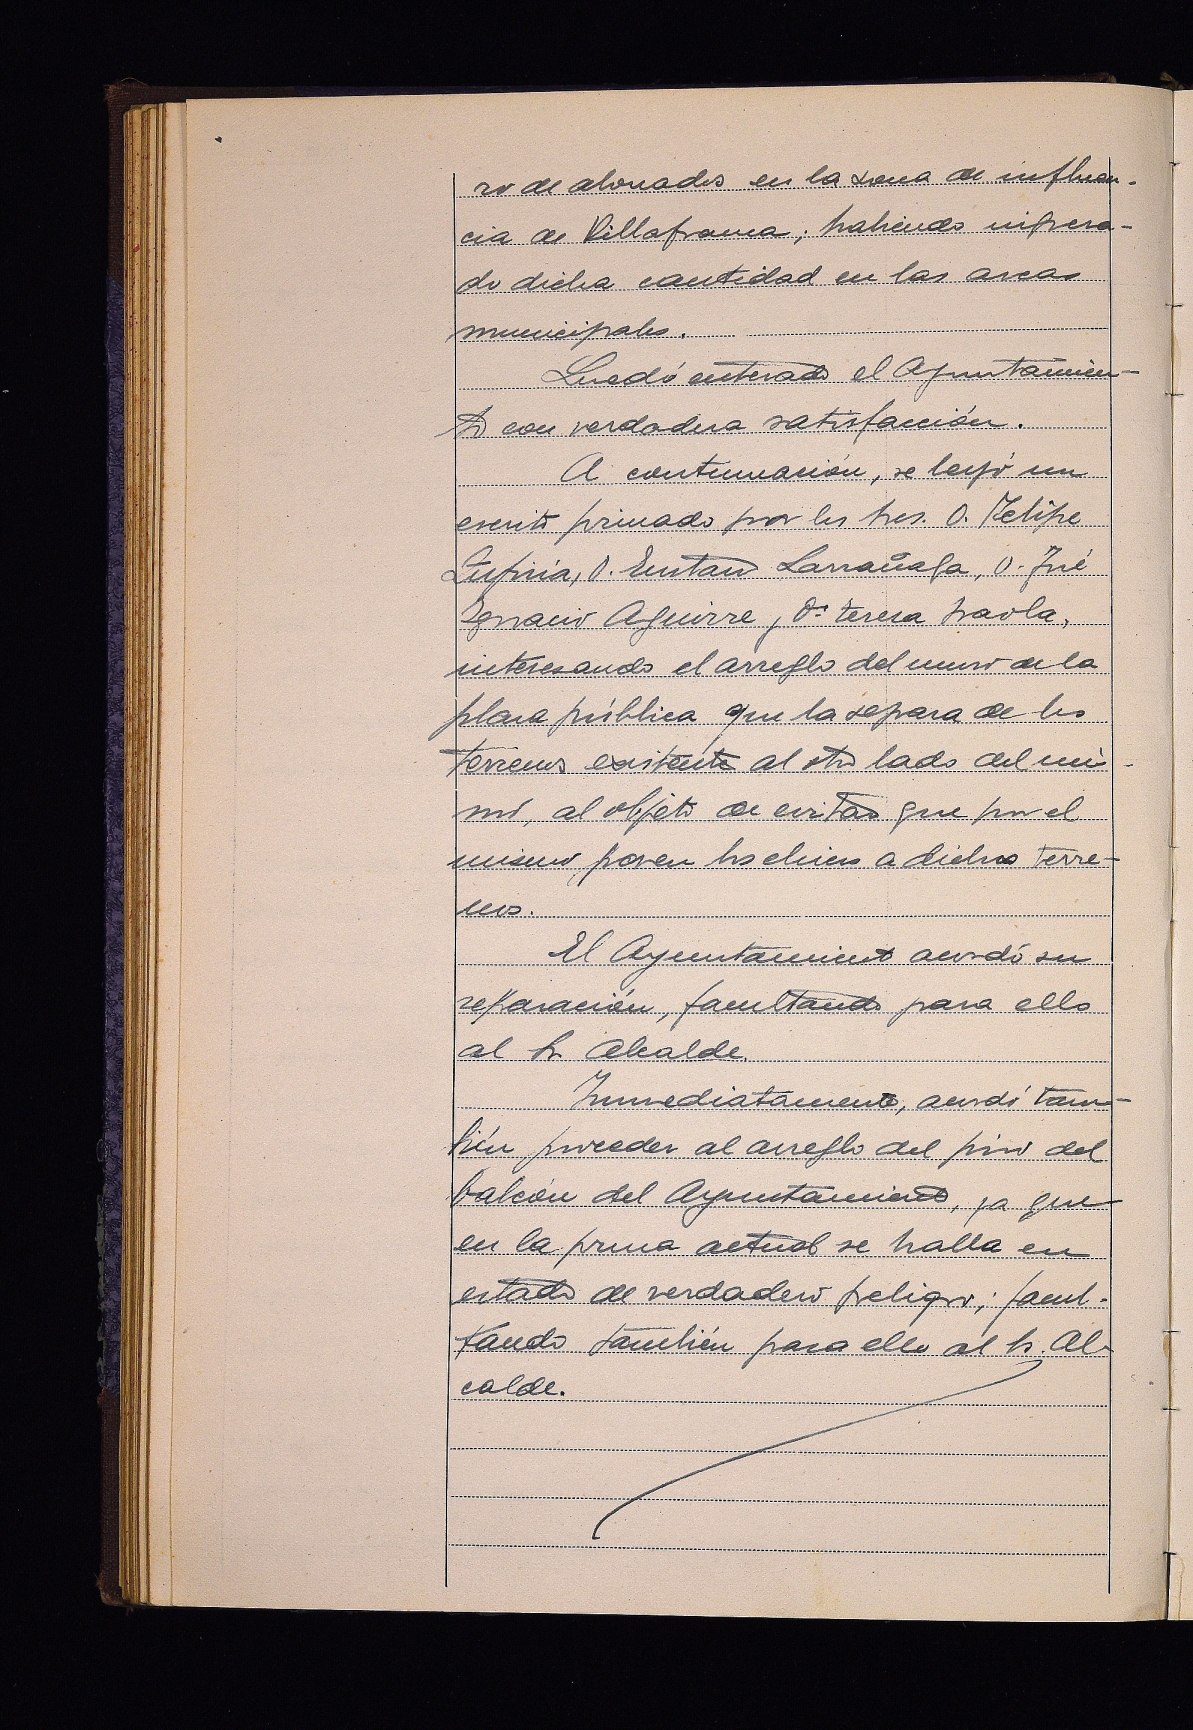 ro de abonados en la zona de influen-
cia de Villafranca; habiendo ingresa-
do dicha cantidad en las arcas
municipales.
Quedó enterado el Ayuntamien-
to con verdadera satisfacción.
A continuación, se leyó un
escrito firmado por los Sres. D. Felipe
D. Eustasio Larrañaga, D. José
Ignacio Aguirre y Dª Teresa
interesando el arreglo del muro de la
plaza pública que la separa de los
terrenos existente al otro lado del mis-
mo, al objeto de evitar que por el
mismo, pasen los chicos a dichos terre-
nos.
El Ayuntamiento acordó su
reparación, facultando para ello
al Sr. Alcalde.
Inmediatamente, acordó tam-
bién proceder al arreglo del piso del
balcón del Ayuntamiento, ya que
en la forma actual se halla en
estado de verdadero peligro; facul-
tando también para ello al Sr. Al-
calde.